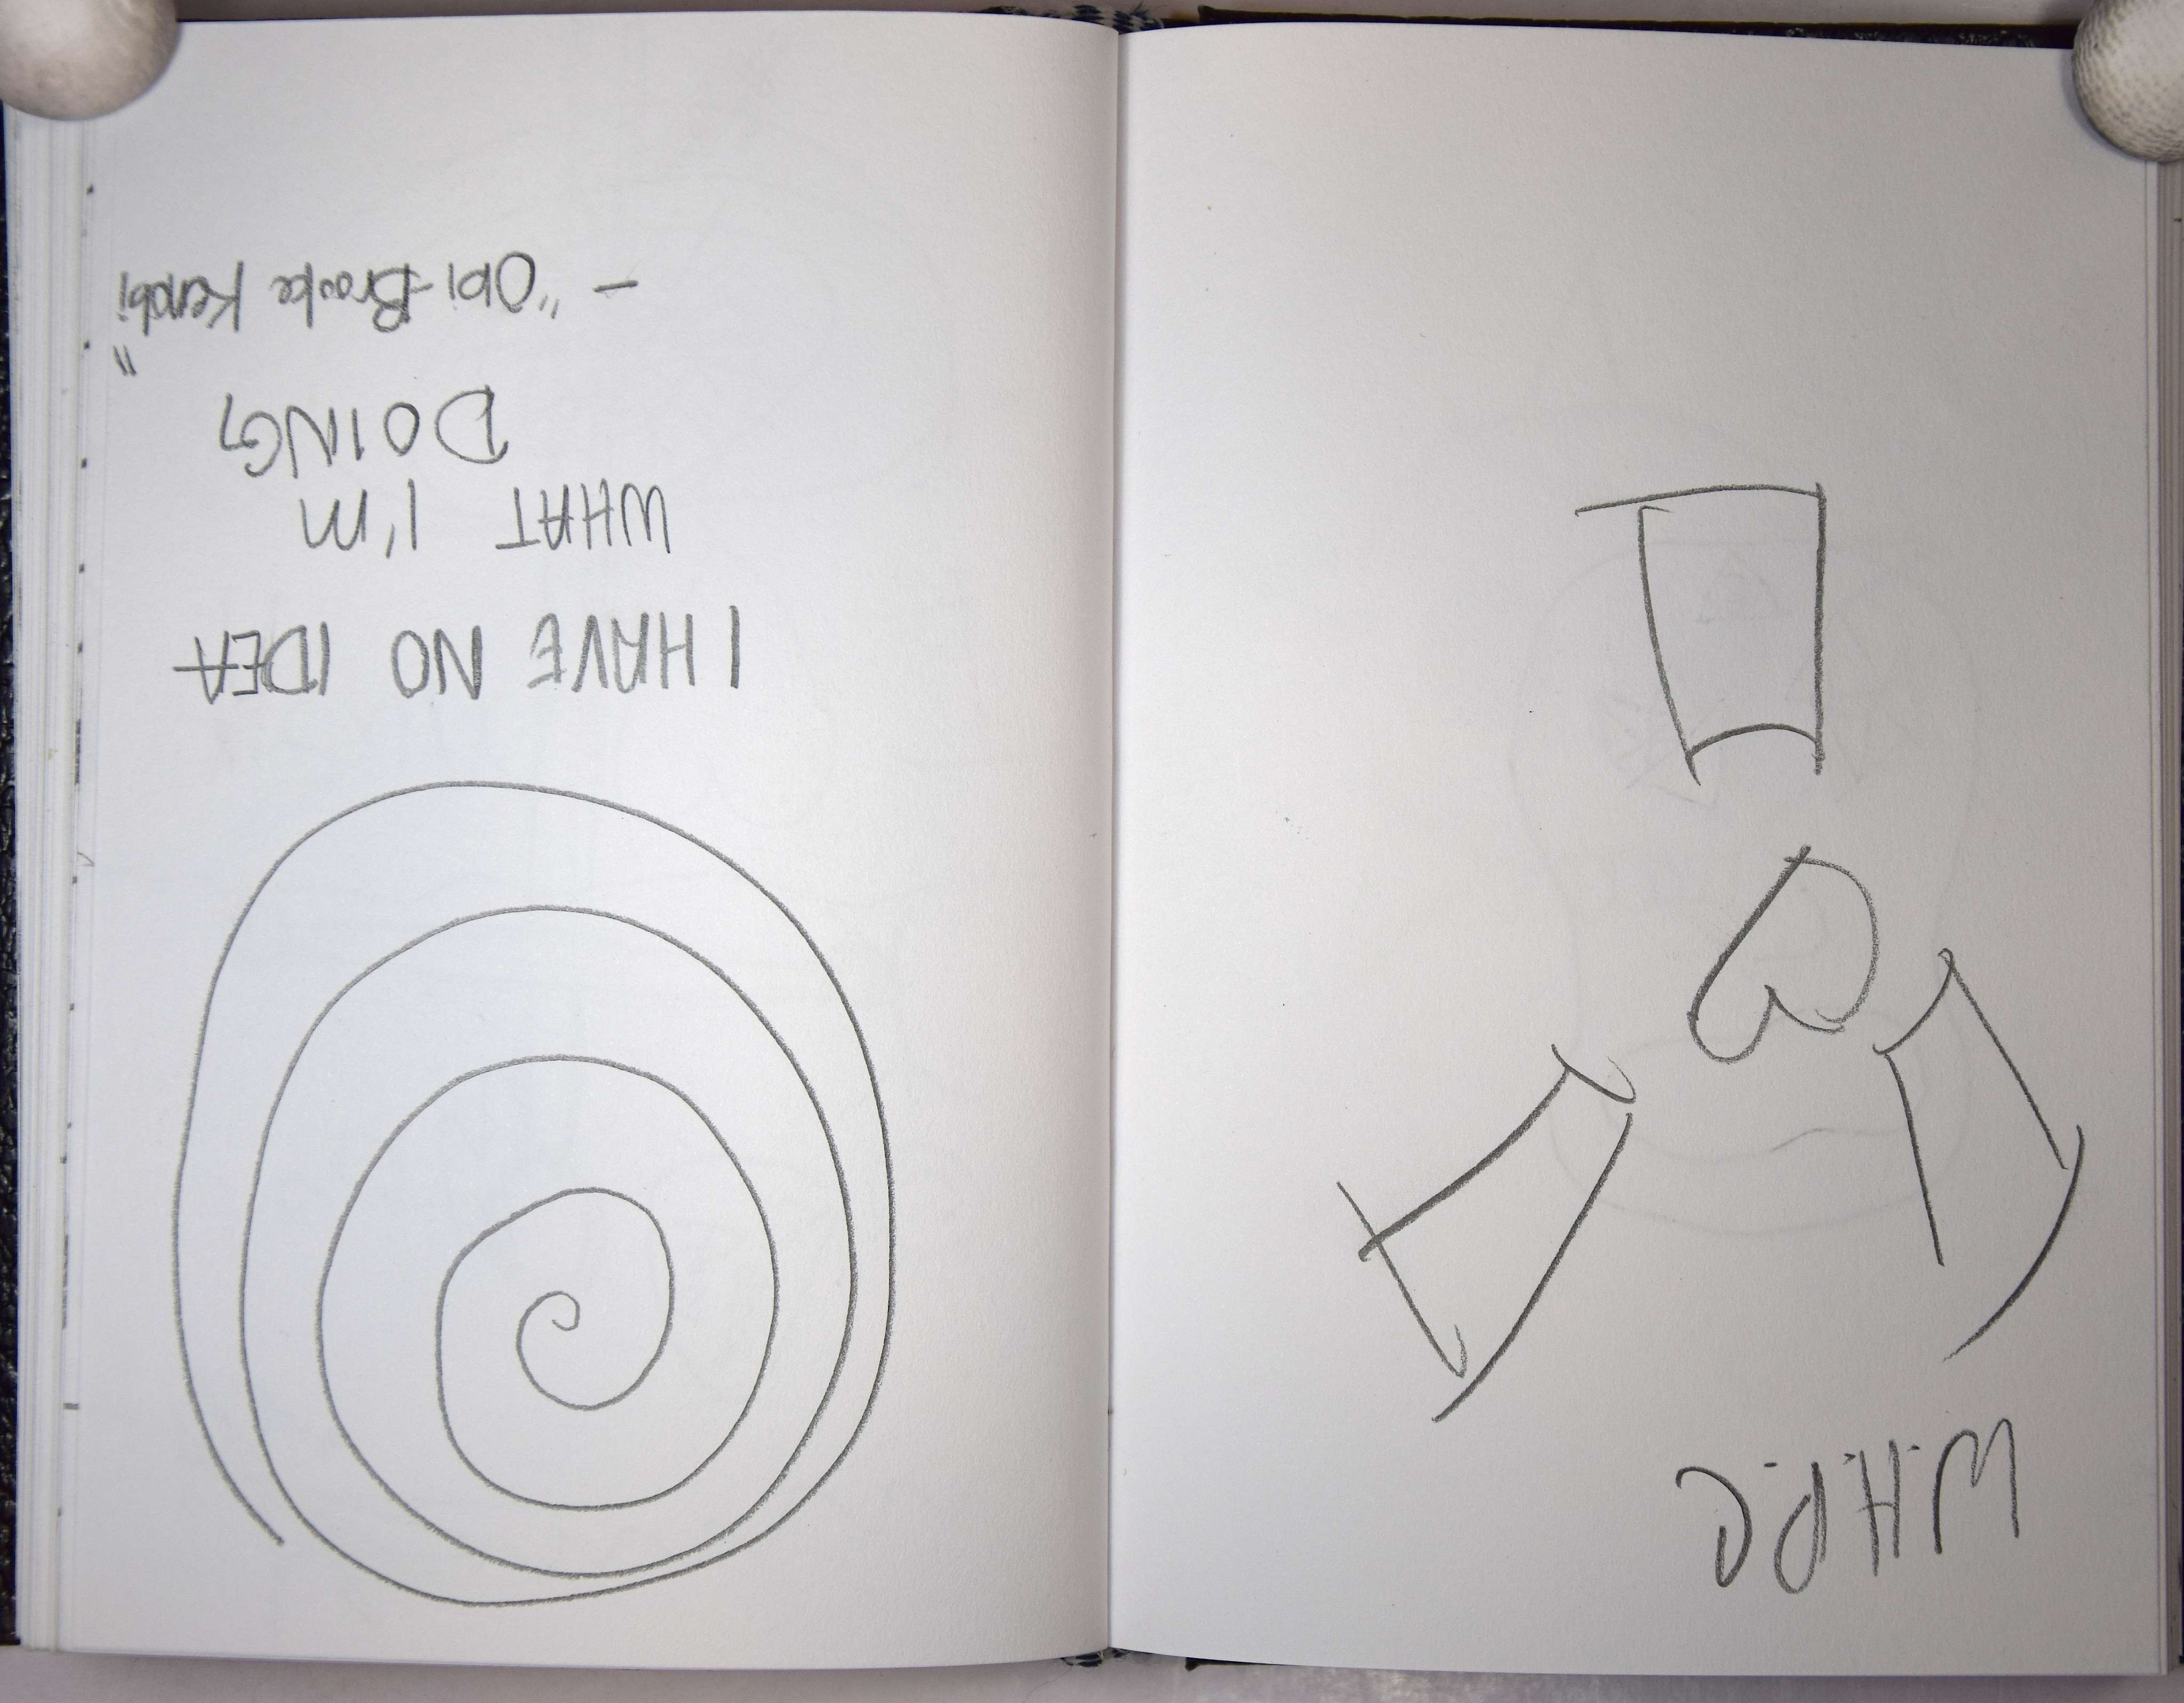 W.H.P.C
I HAVE NO IDEA
WHAT I'M
DOING
- "Obi-Brooke Kenobi"